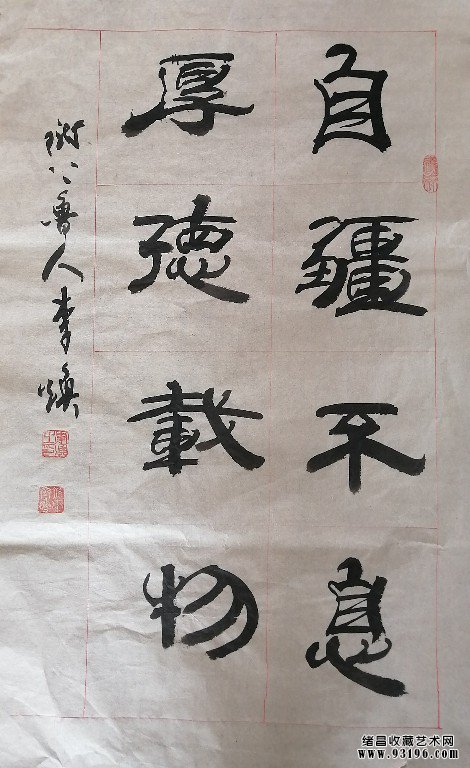 自疆不息
厚德載物
魯人李煥
绪昌收藏艺术网
www.93196.com